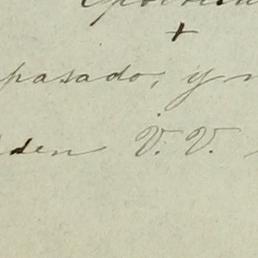 +
pasado, y
den V. V.